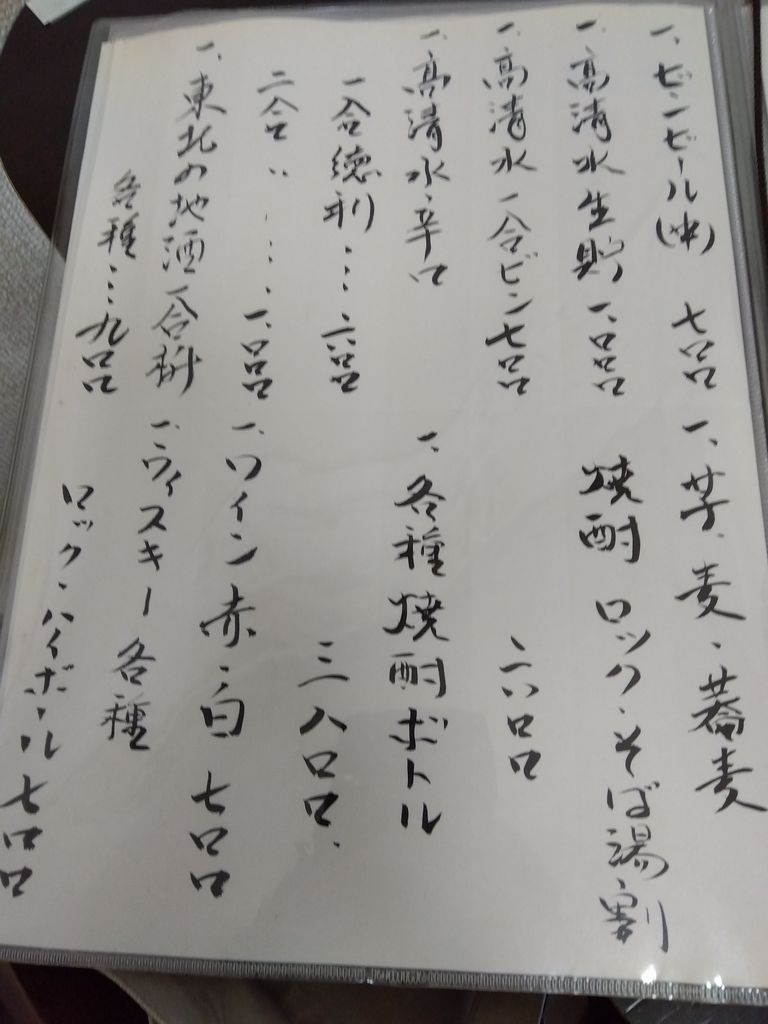 一、ビンビール(中) 七〇〇
一、高清水生貯 一、〇〇〇
一、高清水 一合ビン 七〇〇
一、高清水・辛口
一合徳利… 六〇〇
二合 〃 ‥‥ 一、〇〇〇
一、東北の地酒 一合枡
各種… 九〇〇
一、芋、麦・蕎麦
焼酎 ロック・そば湯割
六〇〇
一、各種焼酎ボトル
三八〇〇、
一、ワイン 赤・白 七〇〇
一、ウイスキー 各種
ロック・ハイボール 七〇〇